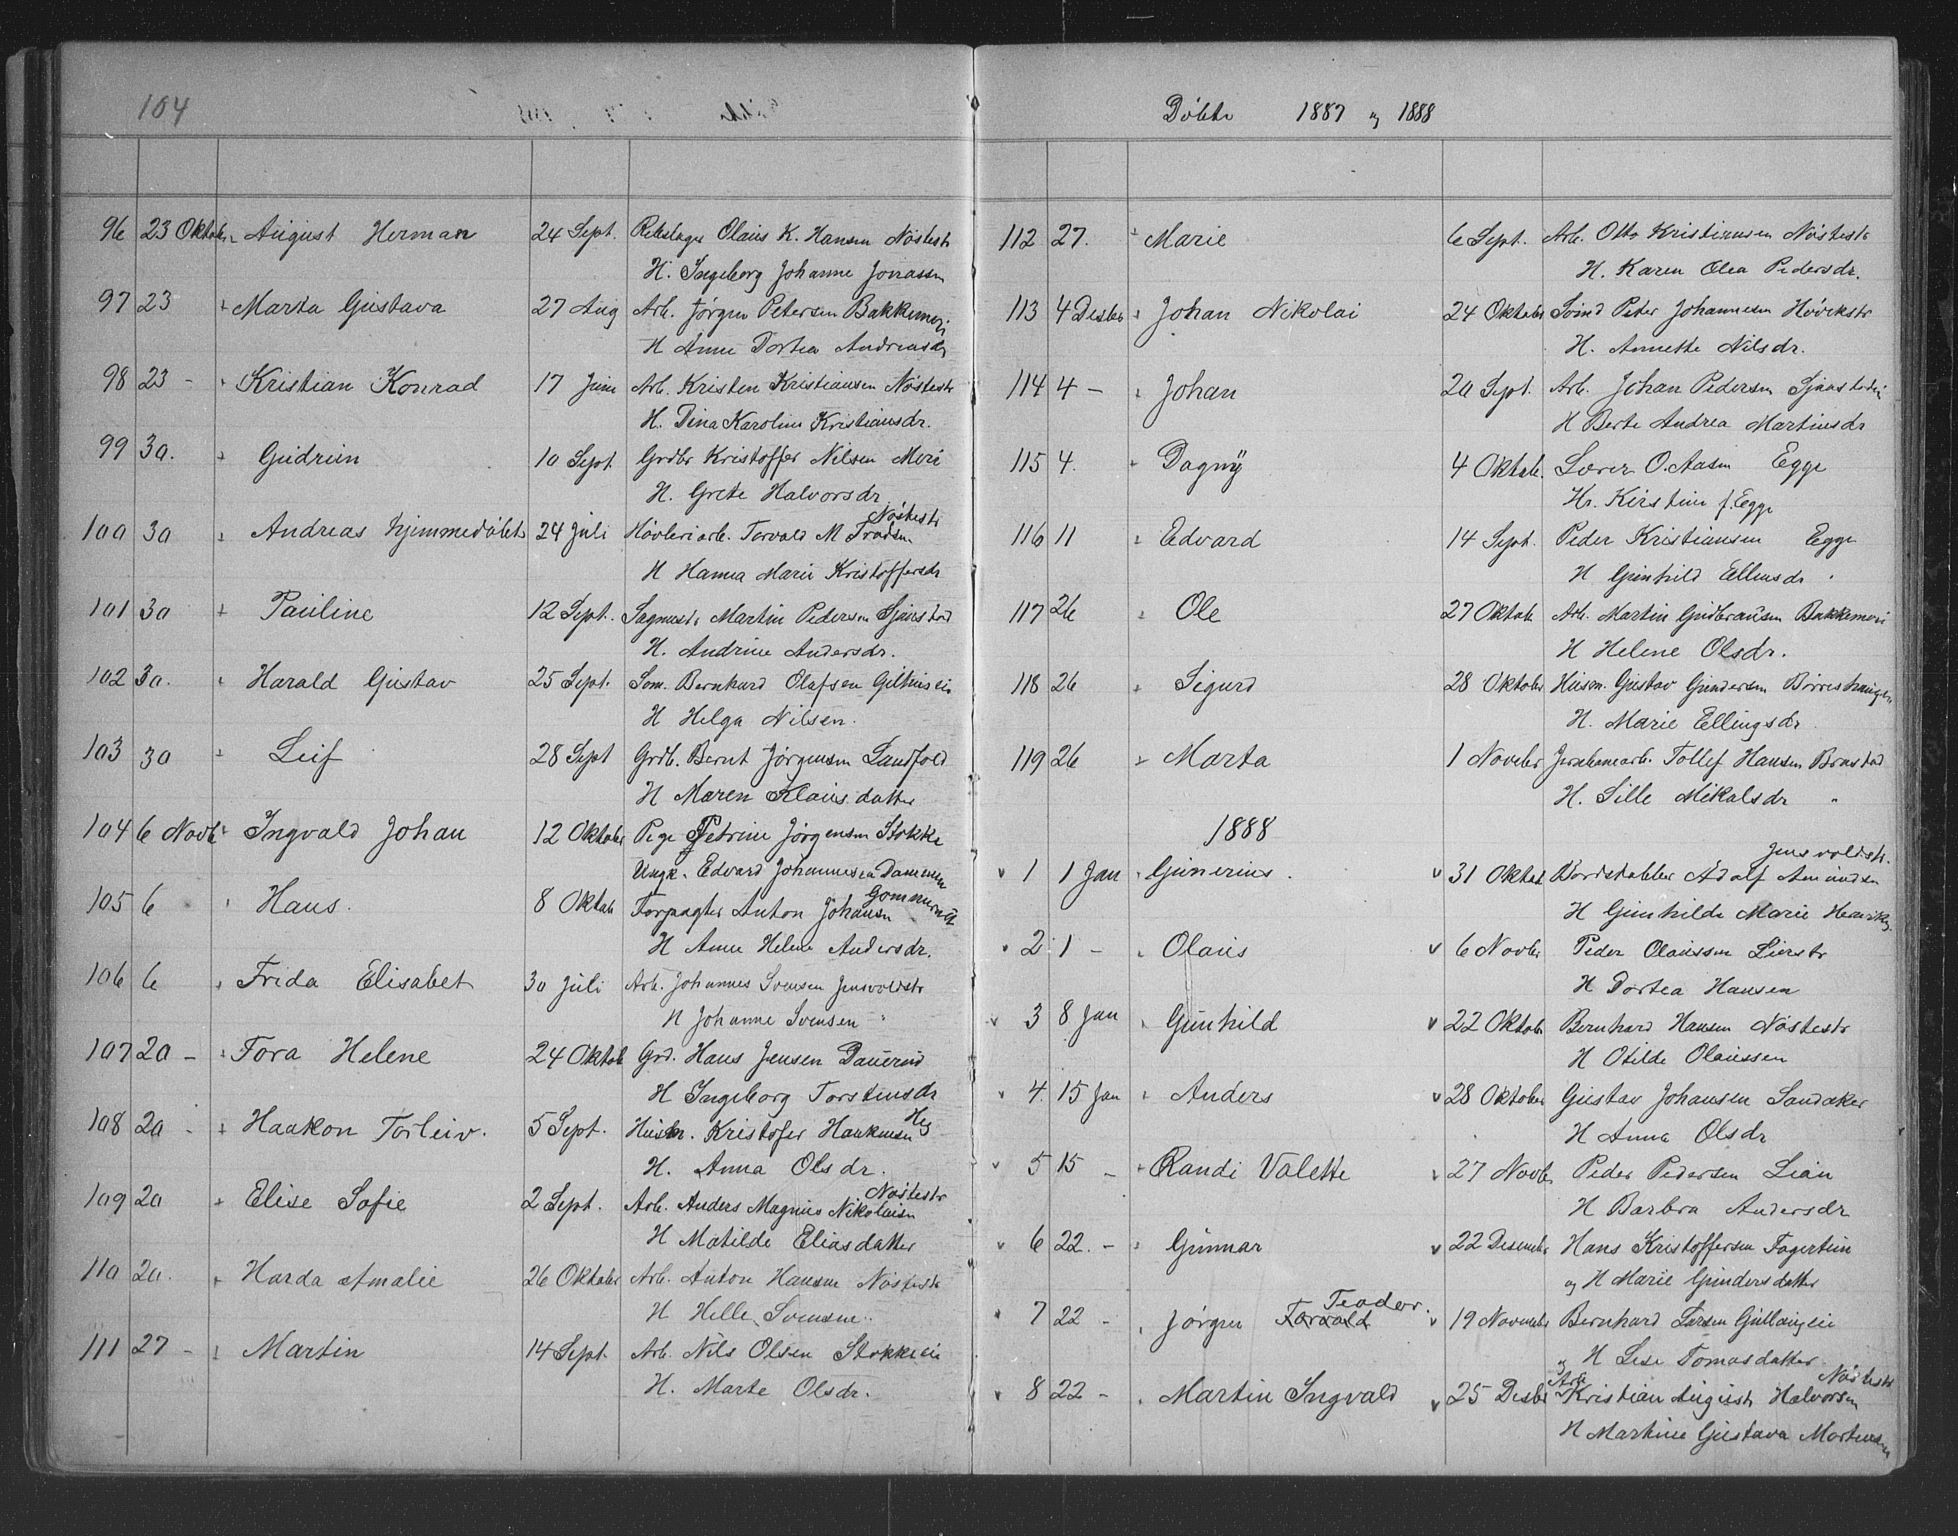 104
96 23 Oktober August Herman 24 Sept. Rebslager Olaus K. Hansen Nøstestr
H. Ingeborg Johanne Jonassen
97 23 Marta Gustava 27 Aug Arb. Jørgen Petersen Bakkemeri
H Anne Dortea Andreasdr
98 23 - Kristian Konrad 17 Juni Arb. Kristen Kristiansen Nøstestr
H. Dina Karoline Kristiansdr.
99 30. Gudrun 10 Sept Grdbr Kristoffer Nilsen Meri
H. Grete Halvorsdr
Nøstestr
100 30 Andreas hjemmedøbt 24 Juli Høvleriarb. Torvald M
H Hanna Marie Kristoffersdr
101 30 Pauline 12 Sept. Sagmest. Martin Pedersen Sjåstad
H. Andrine Andersdr.
102 30. Harald Gustav 25 Sept. Søm. Bernhard Olafsen Gilhusei
H Helga Nilsen.
103 30 Leif 28 Sept Grdb. Bernt Jørgensen Landfald
H Maren Klausdatter
104 6 Novb Ingvald Johan 12 Oktober Pige Petrine Jørgensen Stokke
Ungk. Edvard Johannesen Dammen
105 6 Hans. 8 Oktob Forpagter Anton Johansen
H Anne Helene Andersdr.
106 6 Frida Elisabet 30 Juli Arb. Johannes Svensen Jensvoldstr
H Johanne Svensen "
107 20 - Tora Helene 24 Oktob Grd. Hans Jensen Dauerud
H Ingeborg Torstensdr
Heg
108 20 - Haakon Torleiv. 5 Sept. Husm. Kristofer Haakensen
H. Anna Olsdr.
Nøstestr
109 20 Elise Sofie 2 Sept. Arb. Anders Magnus Nikolaisen
H Matilde Eliasdatter
110 20. Harda Amalie 26 Oktober Arb. Anton Hansen Nøstestr
H Helle Svensen
111 27 - Martin 14 Sept. Arb. Nils Olsen Stokkeei
H. Marte Olsdr.
Døbte 1887 og 1888
112 27. Marie 6 Sept. Arb. Otto Kristiansen Nøstestr
H. Karen Olea Pedersdr.
113 4 Desbr Johan Nikolai 24 Oktober Peter Johannesen Høvikstr
H. Annette Nilsdr.
114 4 - Johan 20 Sept. Arb. Johan Pedersen
H Berte Andrea Martinsdr
115 4. Dagny 4 Oktob. Lærer O. Aasen Egge
Hr. Kirstine f. Egge
116 11 Edvard 14 Sept. Peder Kristiansen Egge
H Gunhild Ellensdr "
117 26 Ole 27 Oktob Arb. Martin Gudbransen Bakkemeri
H Helene Olsdr.
118 26 Sigurd 28 Oktober Husm. Gustav Gundersen Børreshaugen
H. Marie Ellingsdr
119 26 Marta 1 Novebr Jernbanearb. Tollef Hansen Brastad
H. Sille Mikalsdr "
1888
Jensvoldstr.
1 1 Jan Gunerius. 31 Oktob Bordstabber Adolf Amundsen
H Gunhilde Marie
2 1 - Olaus 6 Novbr Peder Olaussen Lierstr
H Dortea Hansen
3 8 Jan Gunhild 22 Oktob Bernhard Hansen Nøstestr
H Otilde Olaussen
4. 15 Jan Anders 28 Oktober Gustav Johansen Sandaker
H Anna Olsdr
5 15 - Randi Valette 27 Novbr Peder Pedersen Lian
H Barbra Andersdr
6 22. - Gunnar 22 Desember Hans Kristoffersen Fagertun
og H Marie Gundersdatter
Teodor.
7 22 - Jørgen Torvald 19 November Bernhard Larsen Gullaugeie
og H Lise Tomasdatter
Arb Nøstestr
8 22 - Martin Ingvald 25 Desbr Kristian August Halvorsen
H Martine Gustava Mortensen